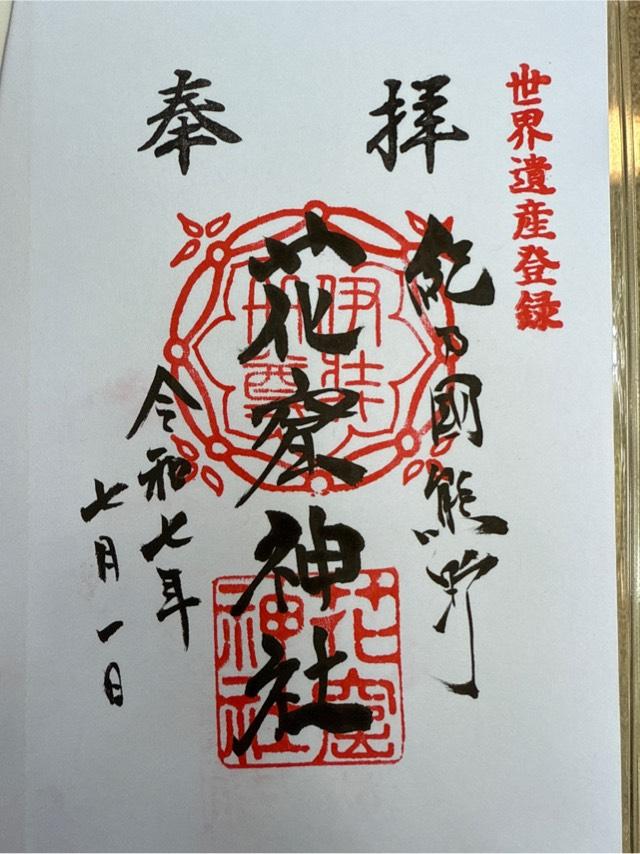 世界遺産登録
奉拝
紀乃國熊野
花窟神社
伊弉
冊尊
花窟
神社
令和七年
七月一日